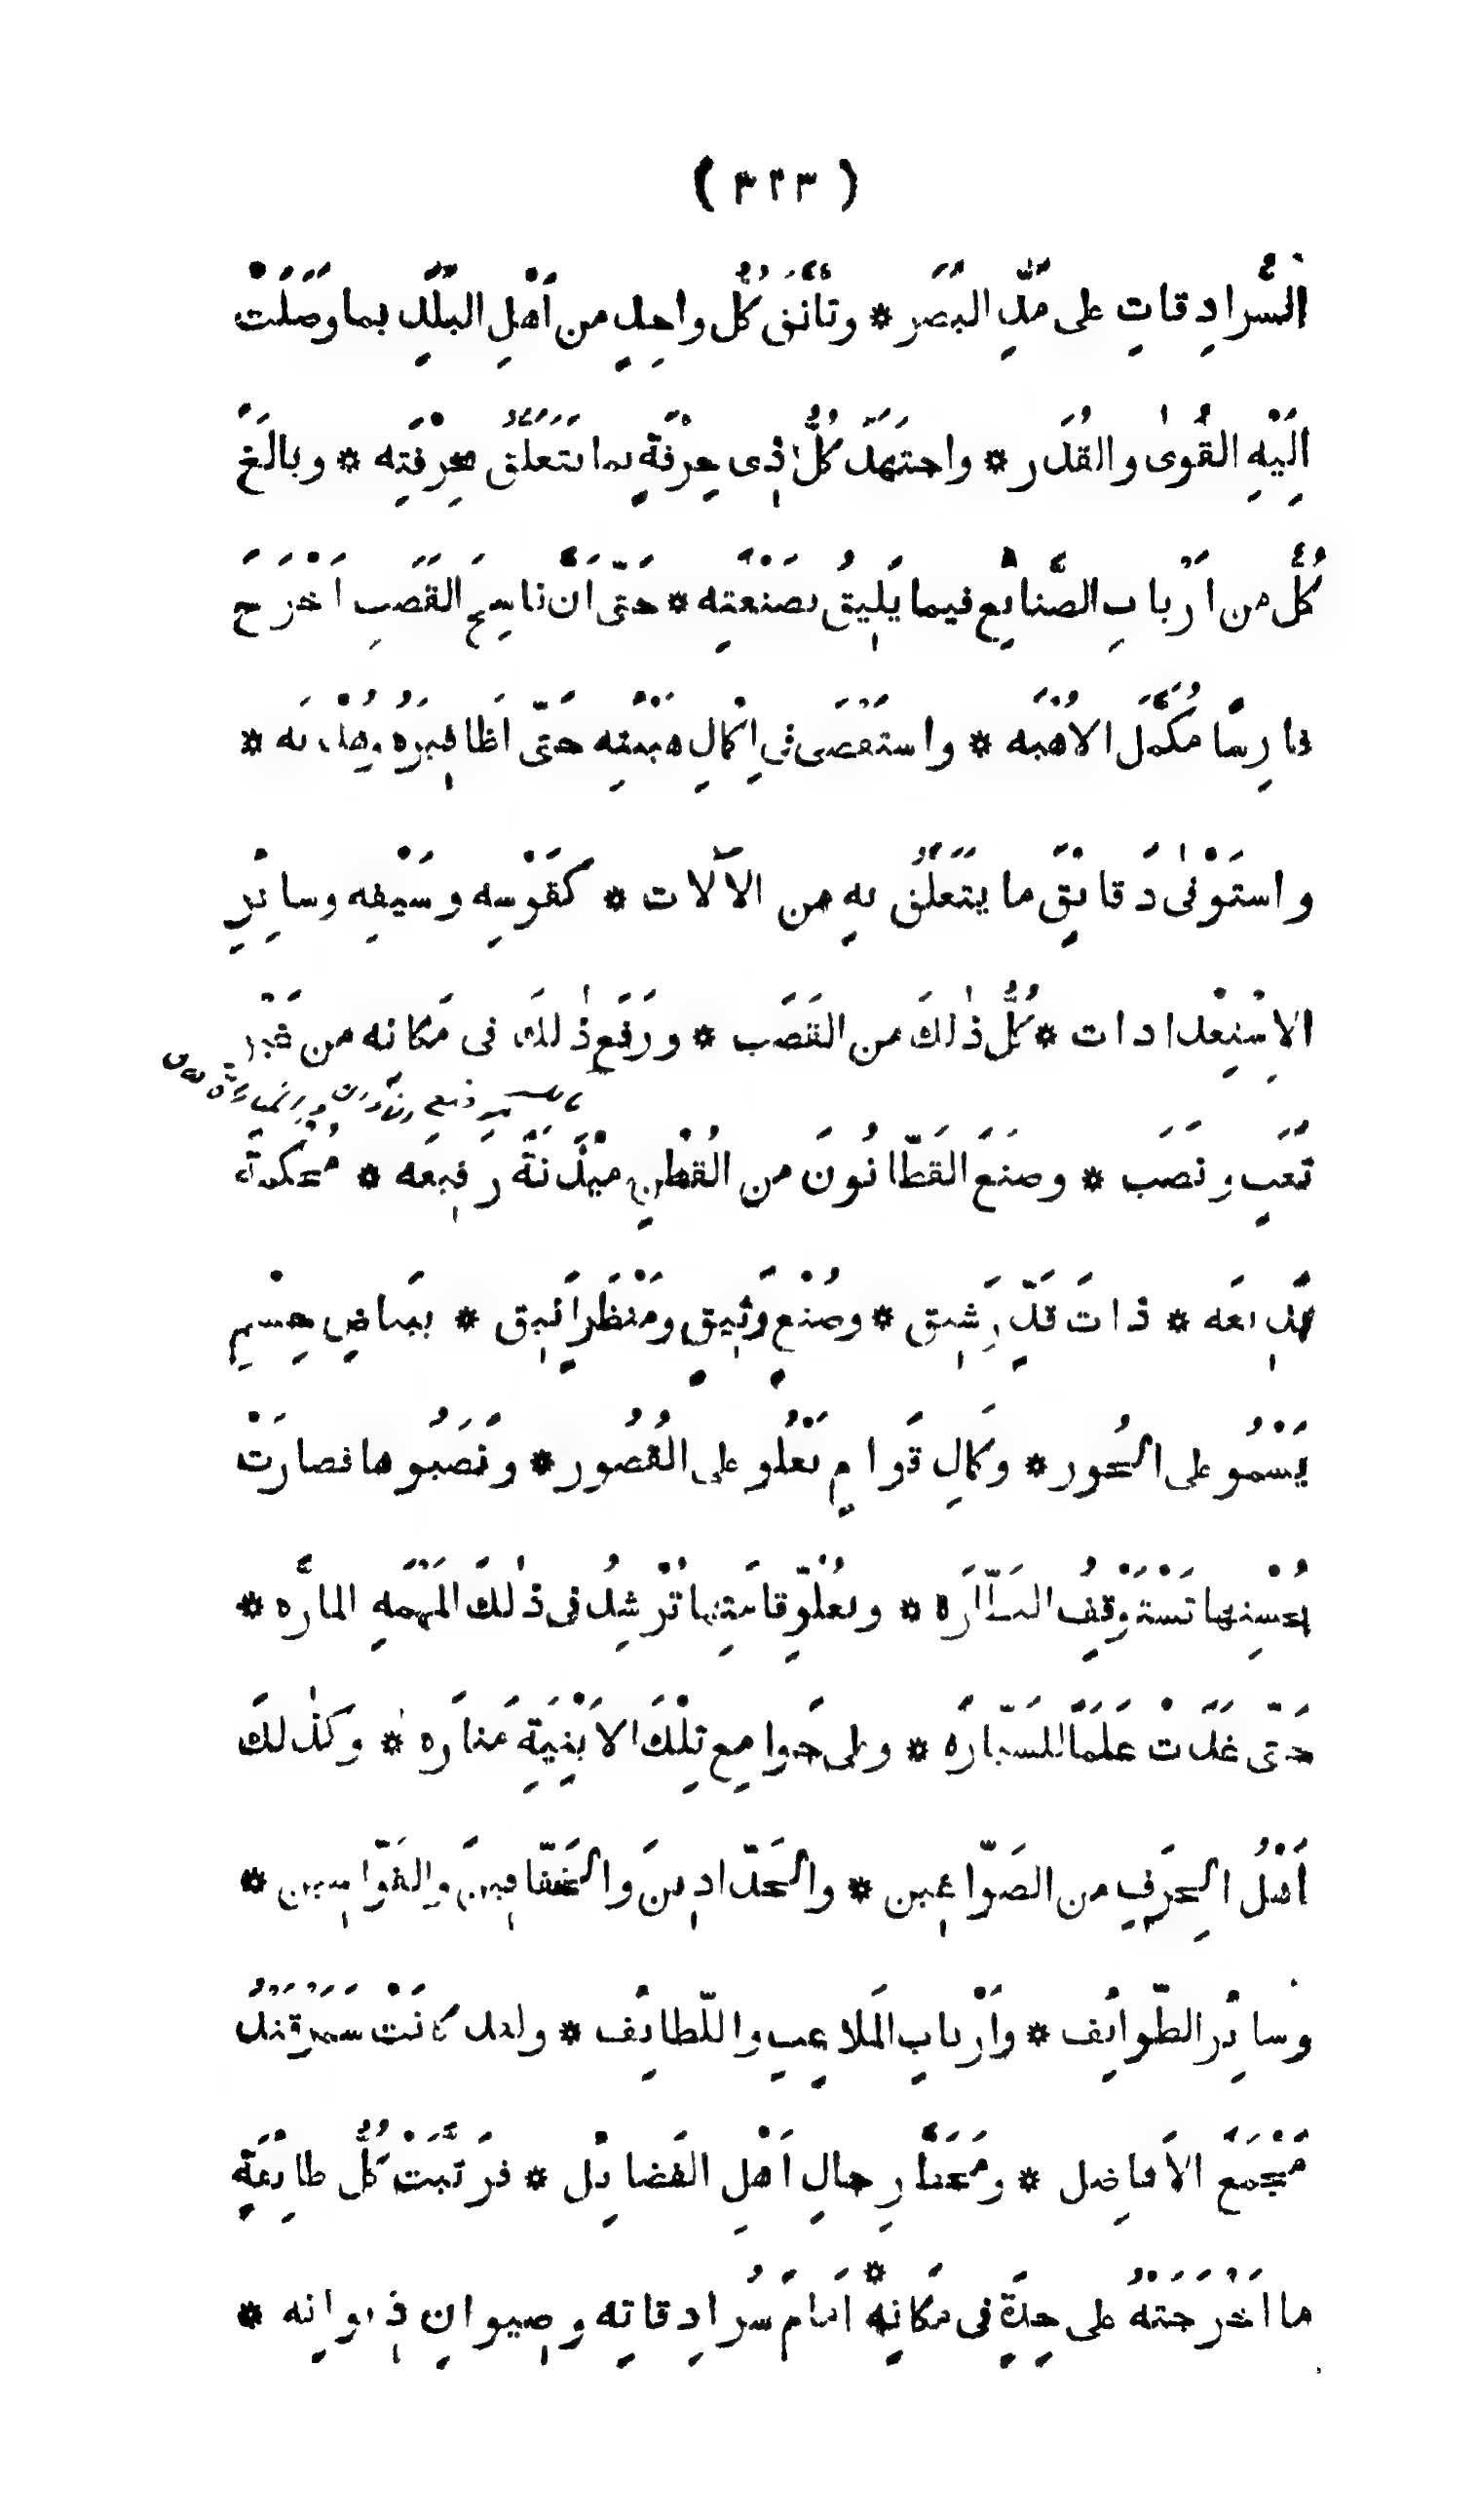 ( ٣٢٣ )
السَّرادِقاتِ على مَدِّ البَصَر * وتَأَنَّقَ كُلُّ واحِدٍ من اَهْلِ البَلَدِ بما وَصَلَتْ
اِلَيْهِ القُوىٰ والقُدَر * واجتَهَدَ كُلُّ ذِى حِرْفَةٍ بما يَتَعَلَّقُ بحِرْفَتِه * وبالَغَ
كُلٌّ من اَرْبابِ الصَّنائِعِ فيما يَلِيقُ بصَنْعَتِه * حَتّى اَنَّ ناسِجَ القَصَبِ اَخْرَجَ
فارِسًا مُكَمَّلَ الاُهْبَه * واستَقْصَى فى اِكْمالِ هَيْئَتِه حَتّى اَظافِيرَهُ وهُدْبَه *
واستَوْفىٰ دَقائِقَ ما يَتَعَلَّقُ بهِ من الآلات * كَقَوْسِه وسَيْفِه وسائِرِ
الاِسْتِعْدادات * كُلُّ ذٰلكَ من القَصَب * ورَفَعَ ذٰلكَ فى مَكانِه من غَيْرِ
تَعَبٍ ونَصَب * وصَنَعَ القَطّانُونَ من القُطْنِ مِيْذَنَةً رَفِيعَه * مُحْكَمَةً
بَدِيعَه * ذاتَ قَدٍّ رَشِيق * وصُنْعٍ وَثِيقٍ ومَنْظَرٍ اَنِيق * ببَياضِ جِسْمٍ
يَسْمُو على الحُور * وكَمالِ قَوامٍ يَعْلُو على القُصُور * ونَصَبُوها فصارَتْ
بحُسْنِها تَسْتَوْقِفُ النَّظّارَه * وبعُلُوِّ قامَتِها تُرْشِدُ فى ذٰلكَ المَهْمَهِ المارَّه *
حَتّى غَدَتْ عَلَمًا للسَيّارَه * وعلى جَوامِعِ تِلْكَ الاَبْنِيَةِ مَنارَه * وكَذٰلكَ
اَهْلُ الحِرَفِ من الصَوّاغِين * والحَدّادِينَ والخَفّافِينَ والقَوّاسِين *
وسائِرِ الطَّوائِف * واَرْبابِ المَلاعِبِ واللَّطائِف * ولقد كانَتْ سَمَرْقَنْدُ
مَجْمَعَ الاَفاضِل * ومَحَطَّ رِحالِ اَهْلِ الفَضائِل * فرَتَّبَتْ كُلُّ طائِفَةٍ
ما اَخْرَجَتْهُ على حِدَةٍ فى مَكانِهِ * اَمامَ سُرادِقاتِه وصِيوانِ دِيوانِه *